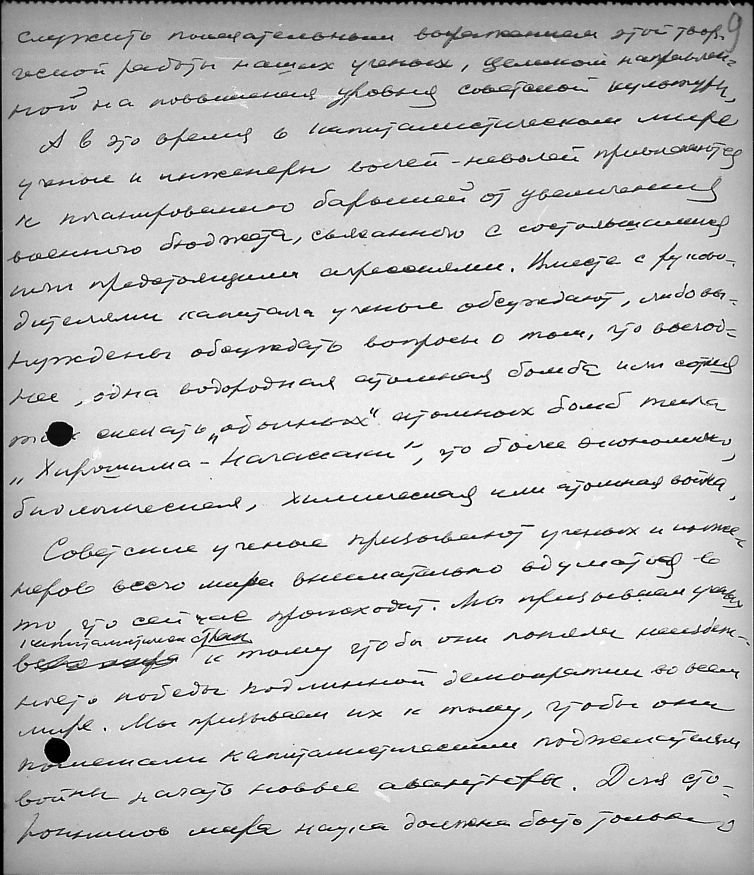 9
служить показательным выражением этой твор-
ческой работы наших ученых, целиком направлен-
ной на повышения уровня советской культуры.
А в это время в капиталистическом мире
ученые и инженеры волей-неволей привлекаются
к планированию барышей от увеличения
военного бюджета, связанного с состоявшимися
или предстоящими агрессиями. Вместе с руково-
дителями капитала ученые обсуждают, либо вы-
нуждены обсуждать вопросы о том, что выгод-
нее, одна водородная атомная бомба или сотня
„обычных“ атомных бомб типа
„Хирошима-Нагассаки“, что более экономично,
биологическая, химическая или атомная война.
Советские ученые призывают ученых и инже-
неров всего мира внимательно вдуматься в
то, что сейчас происходит. Мы призываем ученых
капиталистических стран
всего мира к тому чтобы они поняли неизбеж-
ность победы подлинной демократии во всем
мире. Мы призываем их к тому, чтобы они
помешали капиталистическим поджигателям
войны начать новые авантюры. Для сто-
ронников мира наука должна быть только